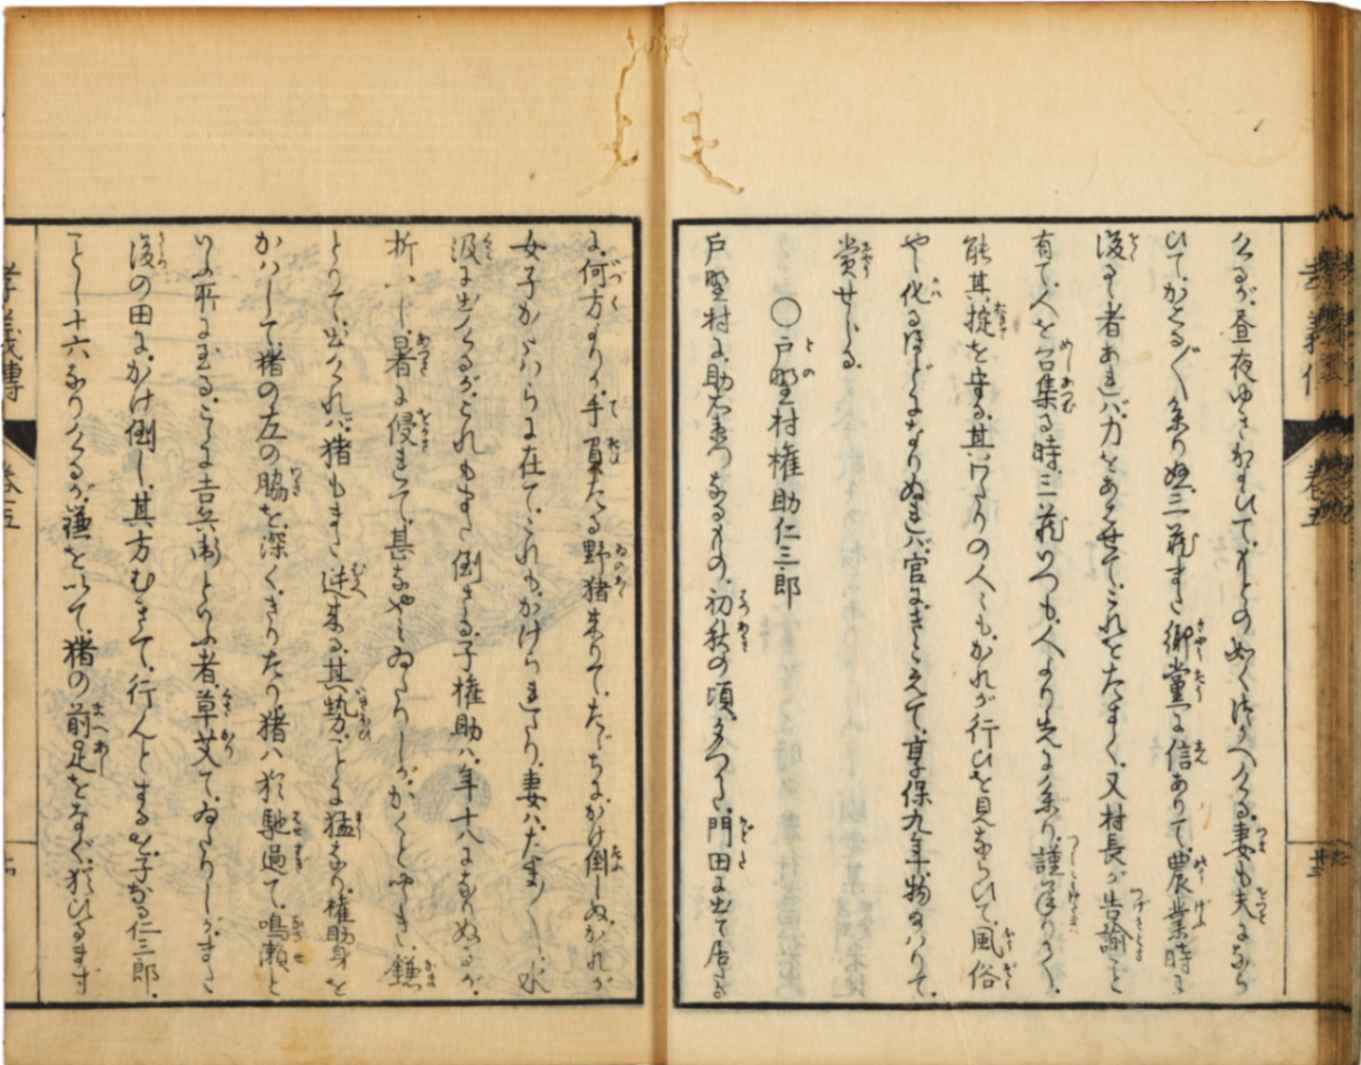 くるが、昼夜ゆきかよひて、もとの如くつかへくる、妻も夫になら
ひて、かくる〴〵参りぬ、三蔵また郷党に信ありて、農業時に
後るゝ者あれバ、力をあはせて、これをたすく、又村長が告諭こと
有て、人を召集る時、三蔵いつも、人より先に参り、謹ありく、
能其掟を守る、其わたりの人々も、かれが行ひを見ならひて、風俗
や化るほどになりぬれバ、官にきこえて、享保九年物たハりて、
賞せらる、
〇戸野村権助仁三郎
戸野村に、助右衛門なるもの、初秋の頃、門田に出て居る
に、何方よりか、手負たる野猪来りて、たゞちにかけ倒しぬ、かれが
女子かたハらに在て、これも、かけられたり、妻ハ、たま〳〵、水
汲に出くるが、これもまた倒さる、子権助ハ、年十八になりぬるが、
折ハし、暑に侵れて、甚なやミゐたりしが、かくときゝ、鎌
とりて、出くれバ、猪もまた迎来る、其勢、ことに猛なり、権助身を
かハして、猪の左の脇を、深くきりたり、猪ハ猶馳過て、鳴瀬と
いふ所にいたる、こゝに吉兵衛といふ者、草艾て、ゐたりしが、また
後の田に、かけ倒し、其方むきて、行んとするを、子なる仁三郎、
ことし十六なりくるが、鎌を以て、猪の前足をなぐ、猶ひるまず
孝義伝 巻五
孝義傳 巻五